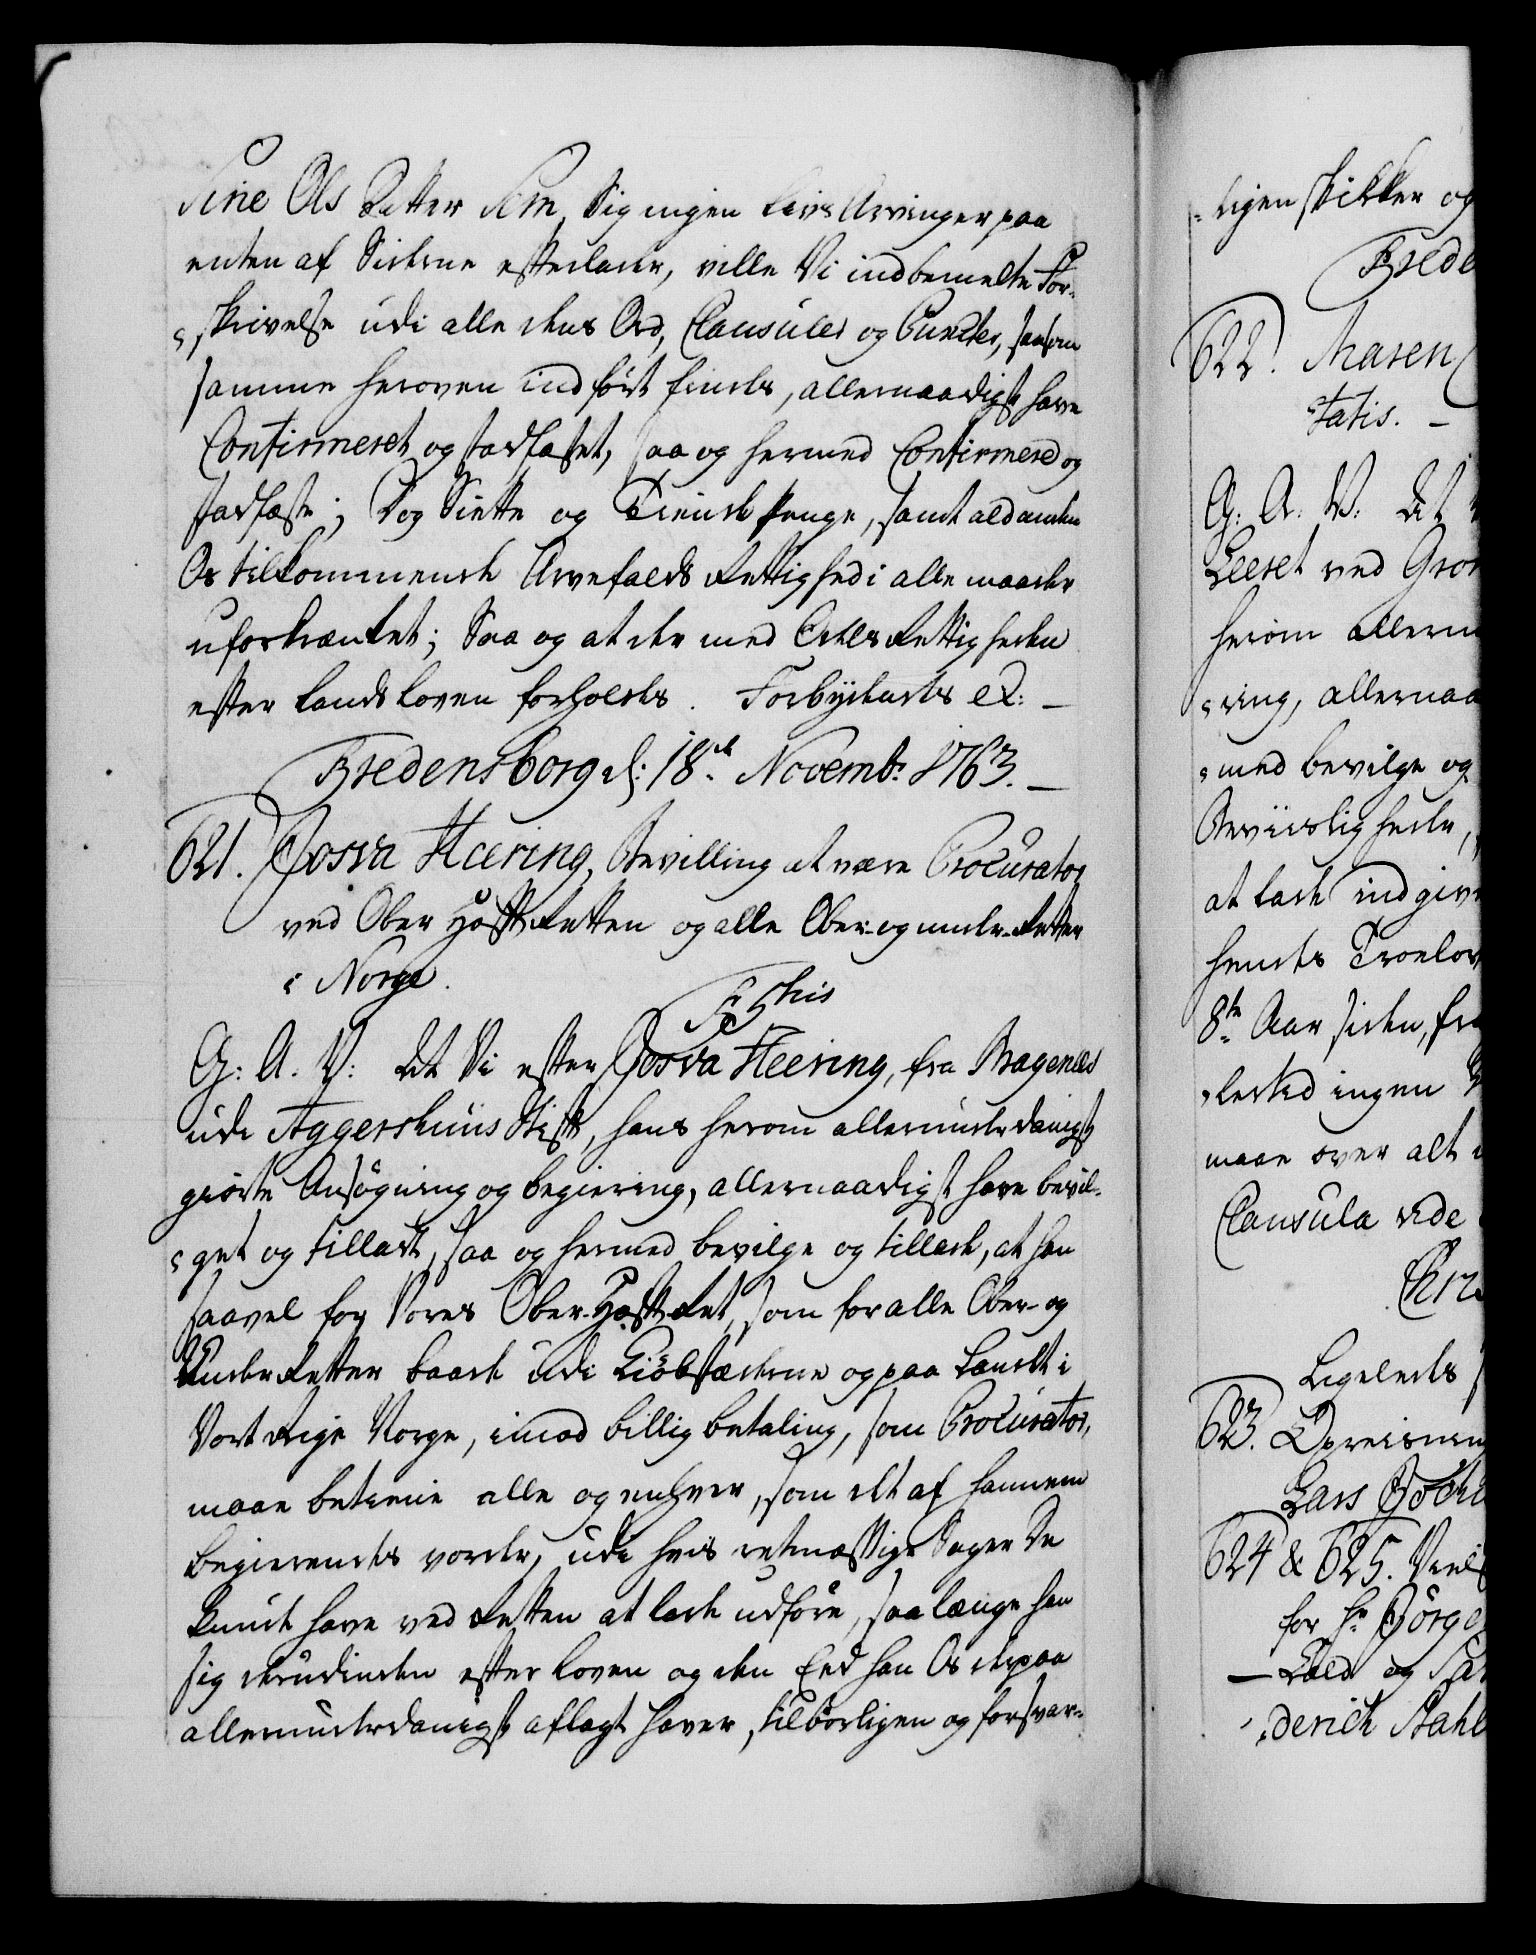 Sine Ols Datter Sem, Sig ingen Livs Arvinger paa
enten af Siderne efterlader, ville Vi indbemelte For-
skrivelse udi alle dens Ord, Clausuler og Puncter, saasom
samme heroven indført findes, allernaadigst have
Confirmeret og stadfæstet, saa og hermed Confirmere og
stadfæste; Dog Siette og Tiende Penge, samt ald anden
Os tilkommende Arvefalds Rettighed i alle maader
uforkrænket; Saa og at der med Odels Rettigheden
efter Lands Loven forholdes. Forbydendes etc: -
Fredensborg d: 18de Novembr 1763. -
621. Josva Heering, Bevilling at være Procurator
ved Ober Hoff Retten og alle Ober- og under-Retter
i Norge.
F 5 this
G: A. V: At Vi efter Josva Heering, fra Bragenæs
udi Aggershuus Stift, hans herom allerunderdanigst
giorte Ansøgning og begiering, allernaadigst have bevil-
get og tilladt, saa og hermed bevilge og tillade, at han
saavel for Vores Ober-Hoff-Ret, som for alle Ober- og
Under Retter baade udi Kiøbstæderne og paa Landet i
Vort Rige Norge, imod billig betaling, som Procurator,
maae betiene alle og enhver, som det af hannem
begierendes vorder, udi hvis retmæssige Sager De
kunde have ved Retten at lade udføre, saalænge han
sig derudinden efter Loven og den Eed han Os derpaa
allerunderdanigst aflagt haver, tilbørligen og forsvar-
ligen skikker og
Frede
622. Maren
tatis. -
G: A. V: At
Leeret ved Gron
herom allern
ring, allernaa
med bevilge og
at lade indgive
hendes Troelov
8te Aar siden, fra
ingen
maae over alt
Clausula vide
Chri
Ligeledes
623. Opreisning
Lars Joch
624 & 625.
for Hr Jørge
derich Stahl